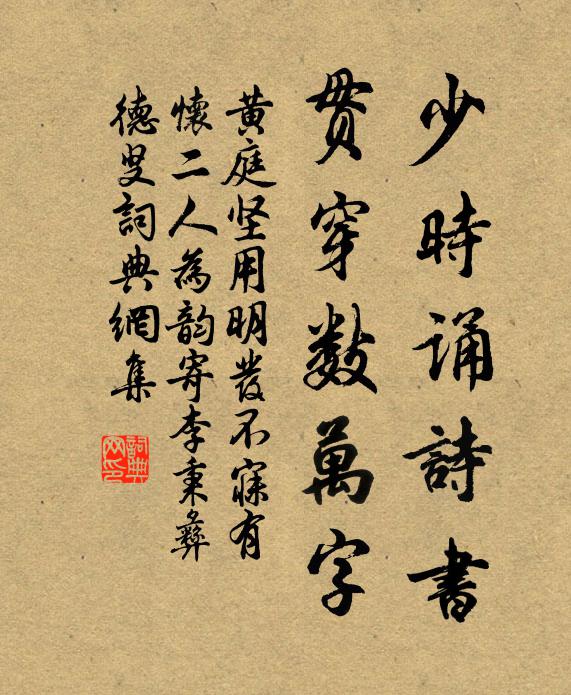 少時誦詩書
貫穿數萬字
黄庭坚用明發不寐有
懷二人為韵寄李秉彝
德叟詞典網集
詞典网印